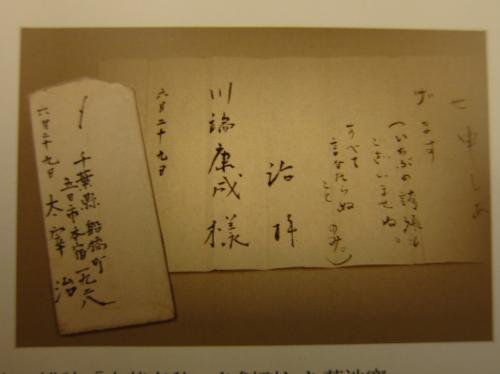 と申しあ
げます
（いちぶの誇張も
ございませぬ。
すべて
言なたらぬ
こと
のみ）
治拝
川端康成様
六月二十九日
千葉縣船橋町
五日市本宿一九二八
太宰治
六月二十九日